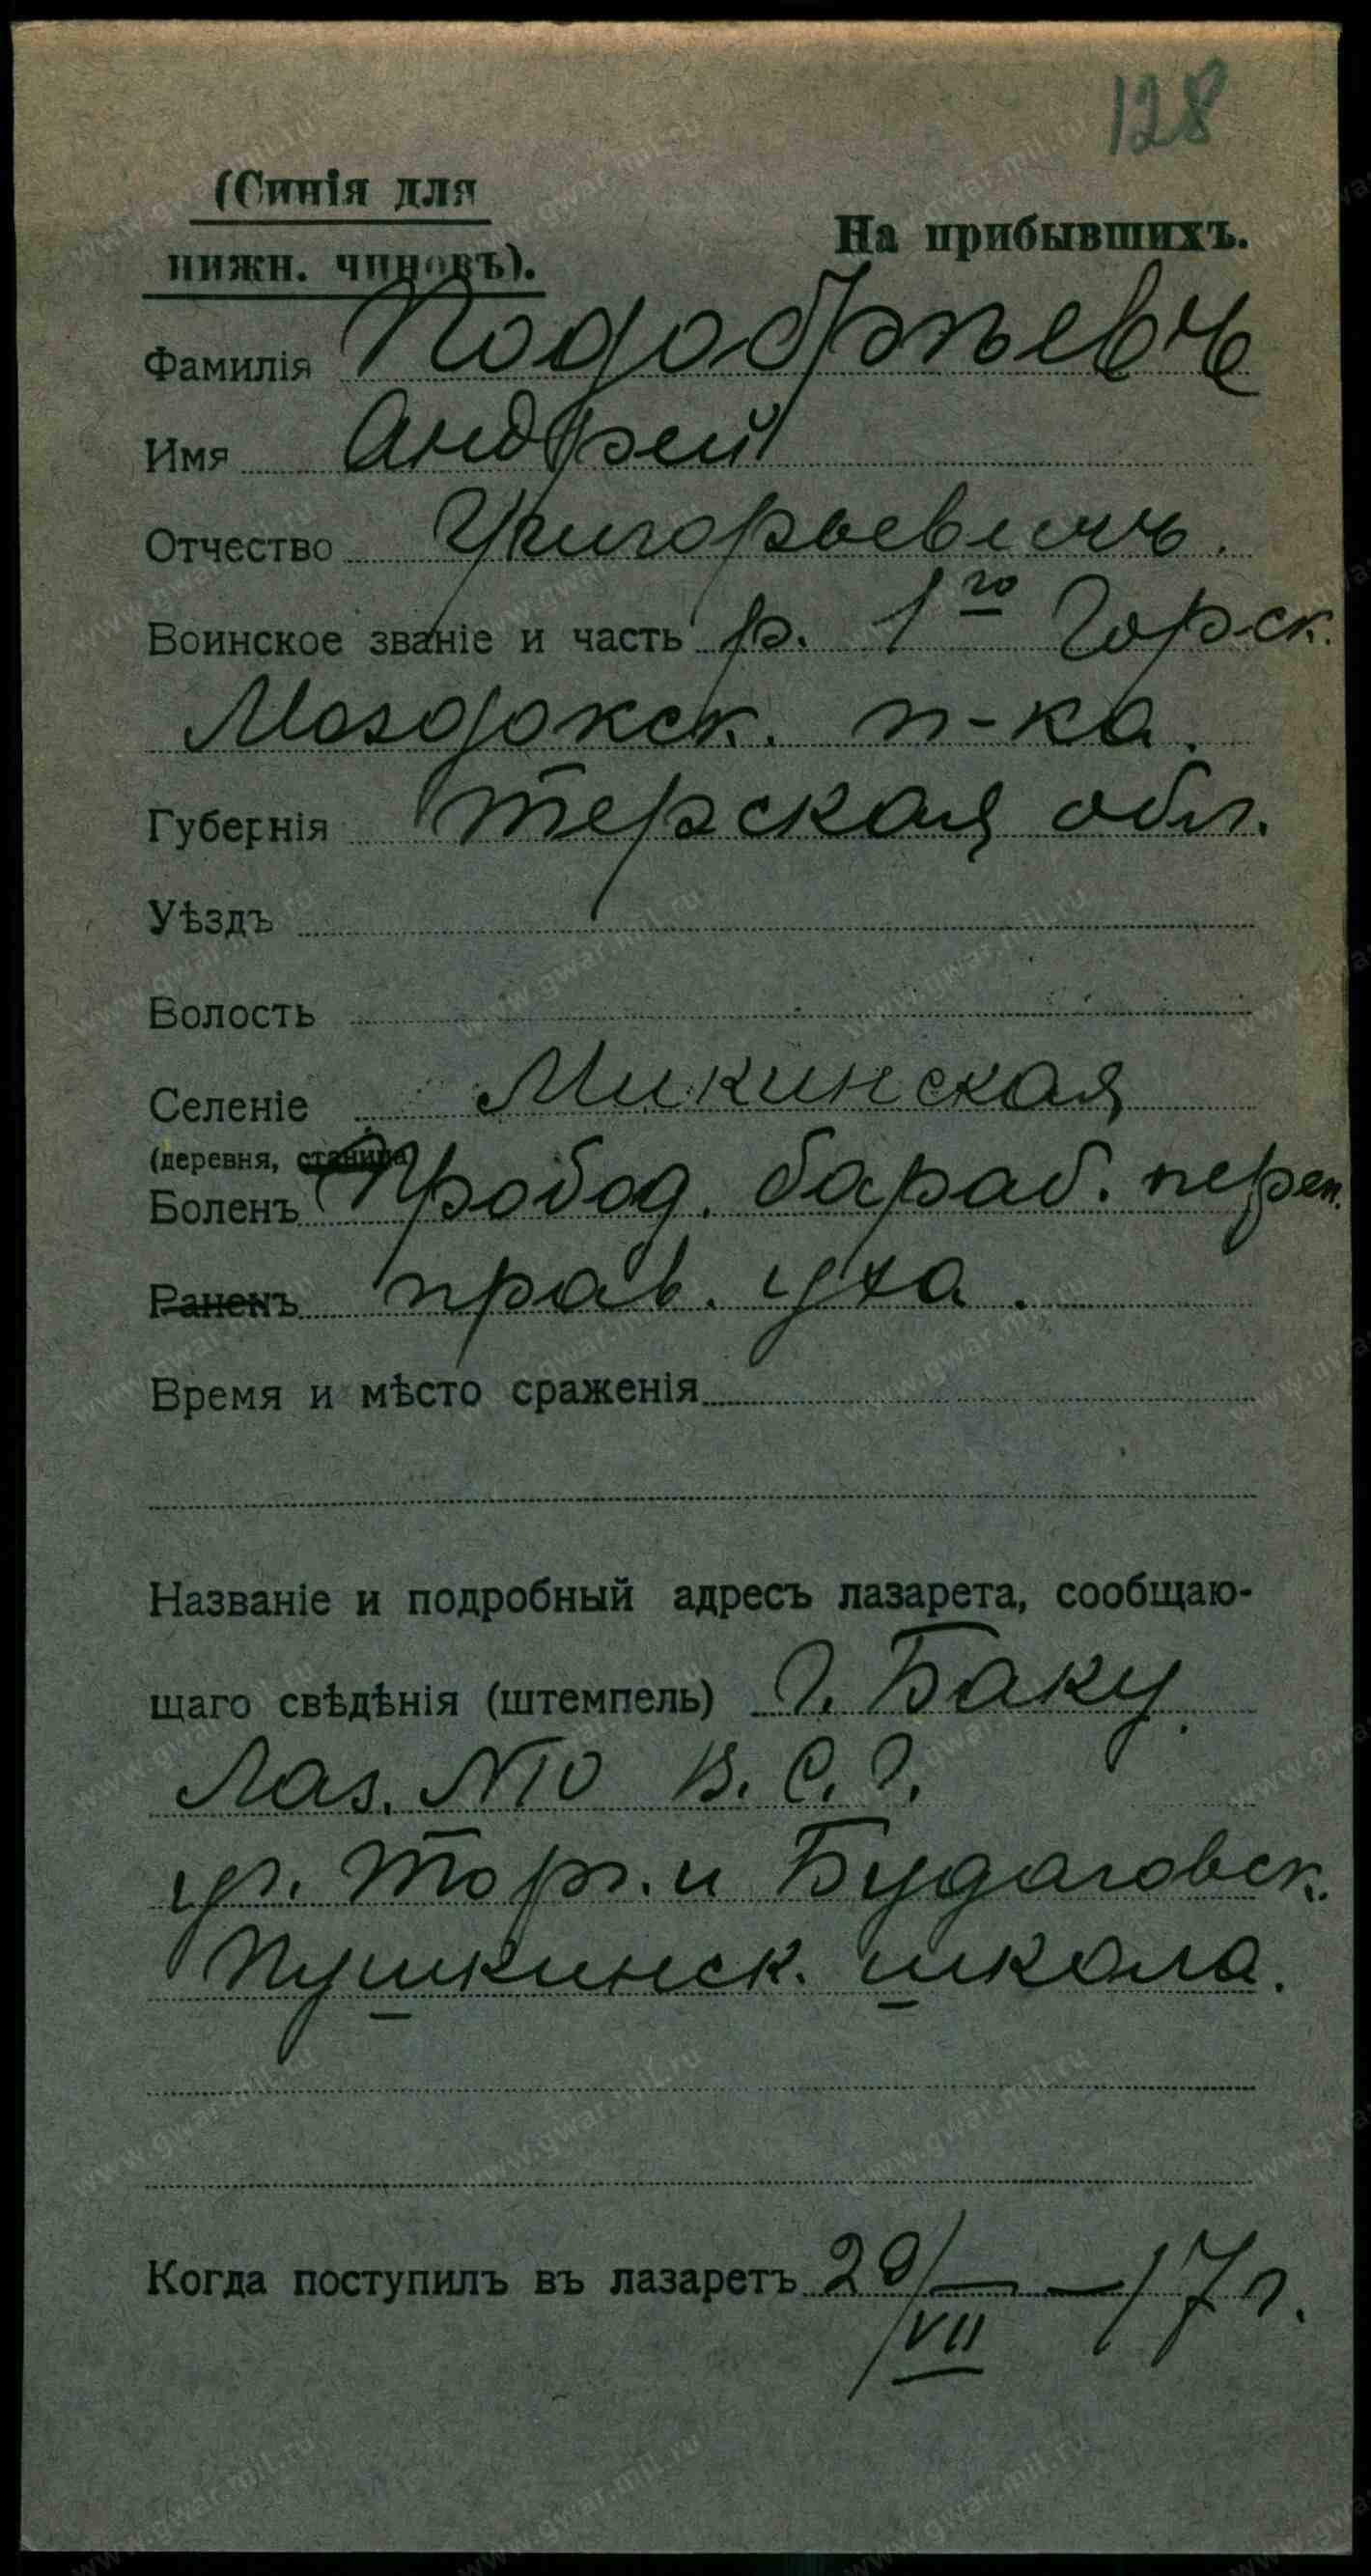 128
(Синія для
нижн. чиновъ).
На прибывшихъ.
Фамилія Подобрѣевъ
Имя Андрей
Отчество Григорьевичъ.
Воинское званіе и часть р. 1го Горск.
Моздокск. п-ка.
Губернія Терская обл.
Уѣздъ
Волость
Селеніе Микинская
(деревня, станица)
Боленъ Пробод. бараб. переп.
Раненъ прав. уха.
Время и мѣсто сраженія
Названіе и подробный адресъ лазарета, сообщаю-
щаго свѣдѣнія (штемпель) г. Баку.
Лаз. №10 В. С. Г.
уг. Торг. и Будаговск.
Пушкинск. школа.
Когда поступилъ въ лазаретъ 29/VII — 17 г.